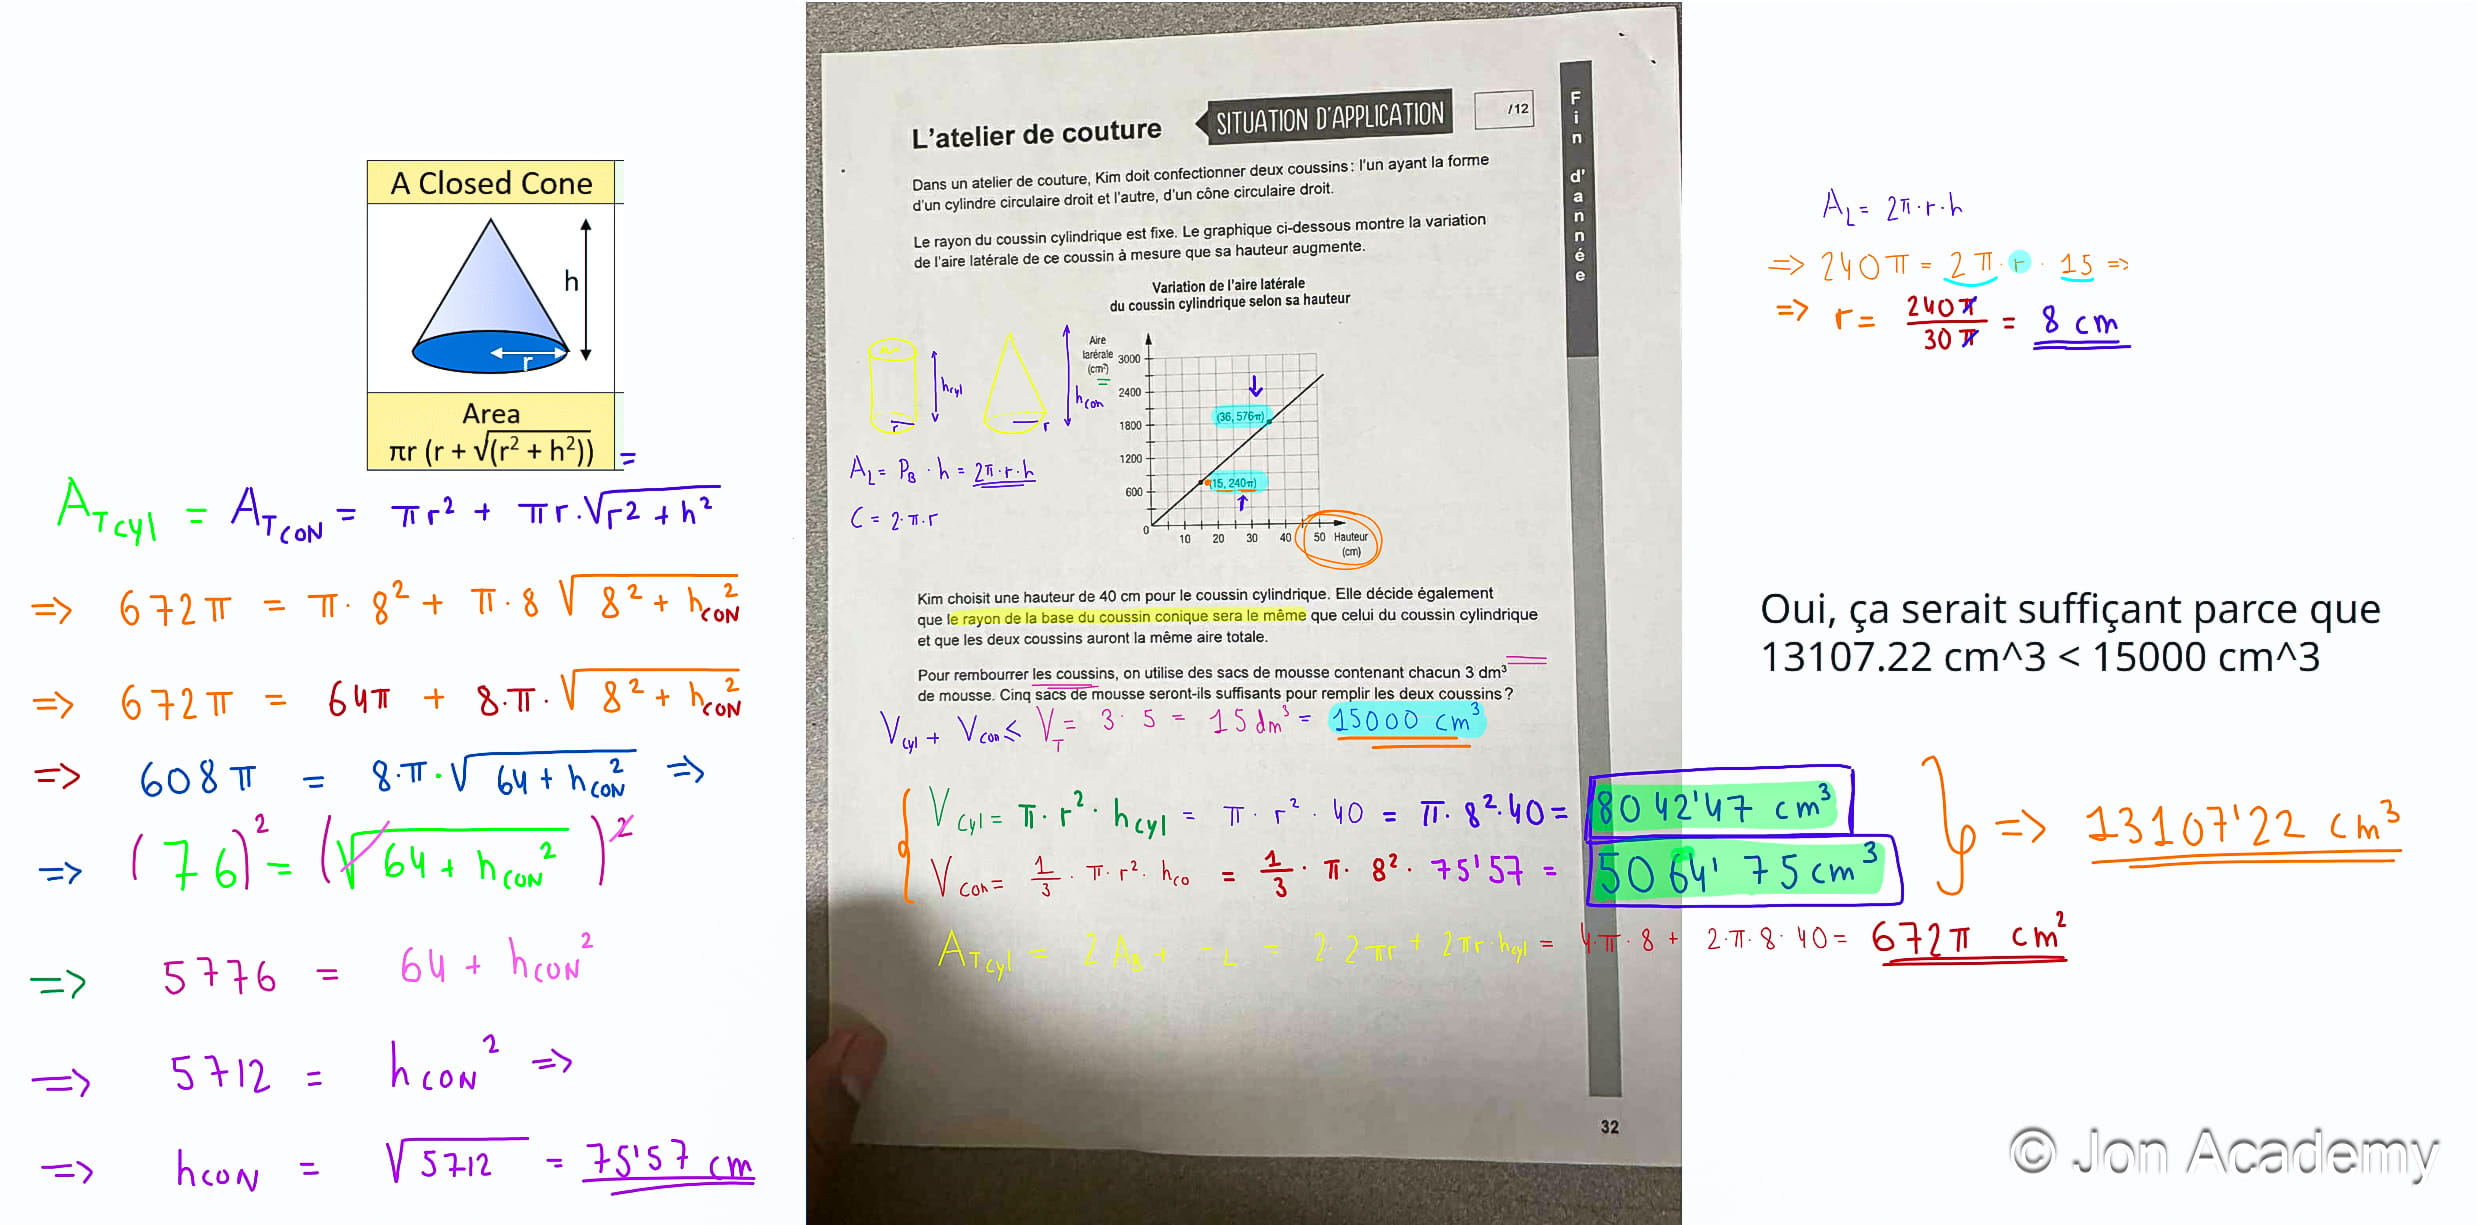 A Closed Cone
h
r
Area
πr (r + √(r² + h²)) =
A_TCYL = A_TCON = πr² + πr·√r² + h²
=> 672π = π·8² + π·8 √8² + h_CON²
=> 672π = 64π + 8·π·√8² + h_CON²
=> 608π = 8·π·√64 + h_CON² =>
=> (76)² = (√64 + h_CON²)²
=> 5776 = 64 + h_CON²
=> 5712 = h_CON² =>
=> h_CON = √5712 = 75'57 cm
L'atelier de couture
SITUATION D'APPLICATION
/12
Fin d'année
Dans un atelier de couture, Kim doit confectionner deux coussins : l'un ayant la forme
d'un cylindre circulaire droit et l'autre, d'un cône circulaire droit.
Le rayon du coussin cylindrique est fixe. Le graphique ci-dessous montre la variation
de l'aire latérale de ce coussin à mesure que sa hauteur augmente.
Variation de l'aire latérale
du coussin cylindrique selon sa hauteur
Aire
larérale
(cm²)
3000
2400
1800
1200
600
0
10 20 30 40 50 Hauteur
(cm)
(36, 576π)
(15, 240π)
h_cyl
r
h_con
r
A_L = P_B · h = 2π·r·h
C = 2·π·r
Kim choisit une hauteur de 40 cm pour le coussin cylindrique. Elle décide également
que le rayon de la base du coussin conique sera le même que celui du coussin cylindrique
et que les deux coussins auront la même aire totale.
Pour rembourrer les coussins, on utilise des sacs de mousse contenant chacun 3 dm³
de mousse. Cinq sacs de mousse seront-ils suffisants pour remplir les deux coussins ?
V_cyl + V_con ≤ V_T = 3·5 = 15 dm³ = 15000 cm³
V_cyl = π·r²·h_cyl = π·r²·40 = π·8²·40 = 8042'47 cm³
V_con = 1/3·π·r²·h_co = 1/3·π·8²·75'57 = 5064'75 cm³
=> 13107'22 cm³
A_Tcyl = 2A_B + -L = 2·2πr + 2πr·h_cyl = 4·π·8 + 2·π·8·40 = 672π cm²
32
A_L = 2π·r·h
=> 240π = 2π·r·15 =>
=> r = 240π/30π = 8 cm
Oui, ça serait suffiçant parce que
13107.22 cm^3 < 15000 cm^3
© Jon Academy